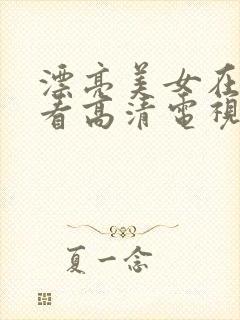 漂亮美女在
看高清電視
夏一念